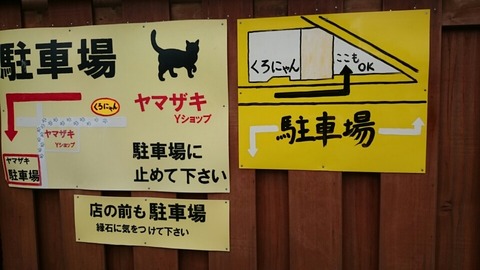 駐車場
くろにゃん
ヤマザキ
Yショップ
ヤマザキ
Yショップ
ヤマザキ
駐車場
駐車場に
止めて下さい
店の前も駐車場
縁石に気をつけて下さい
くろにゃん
ここも
OK
駐車場